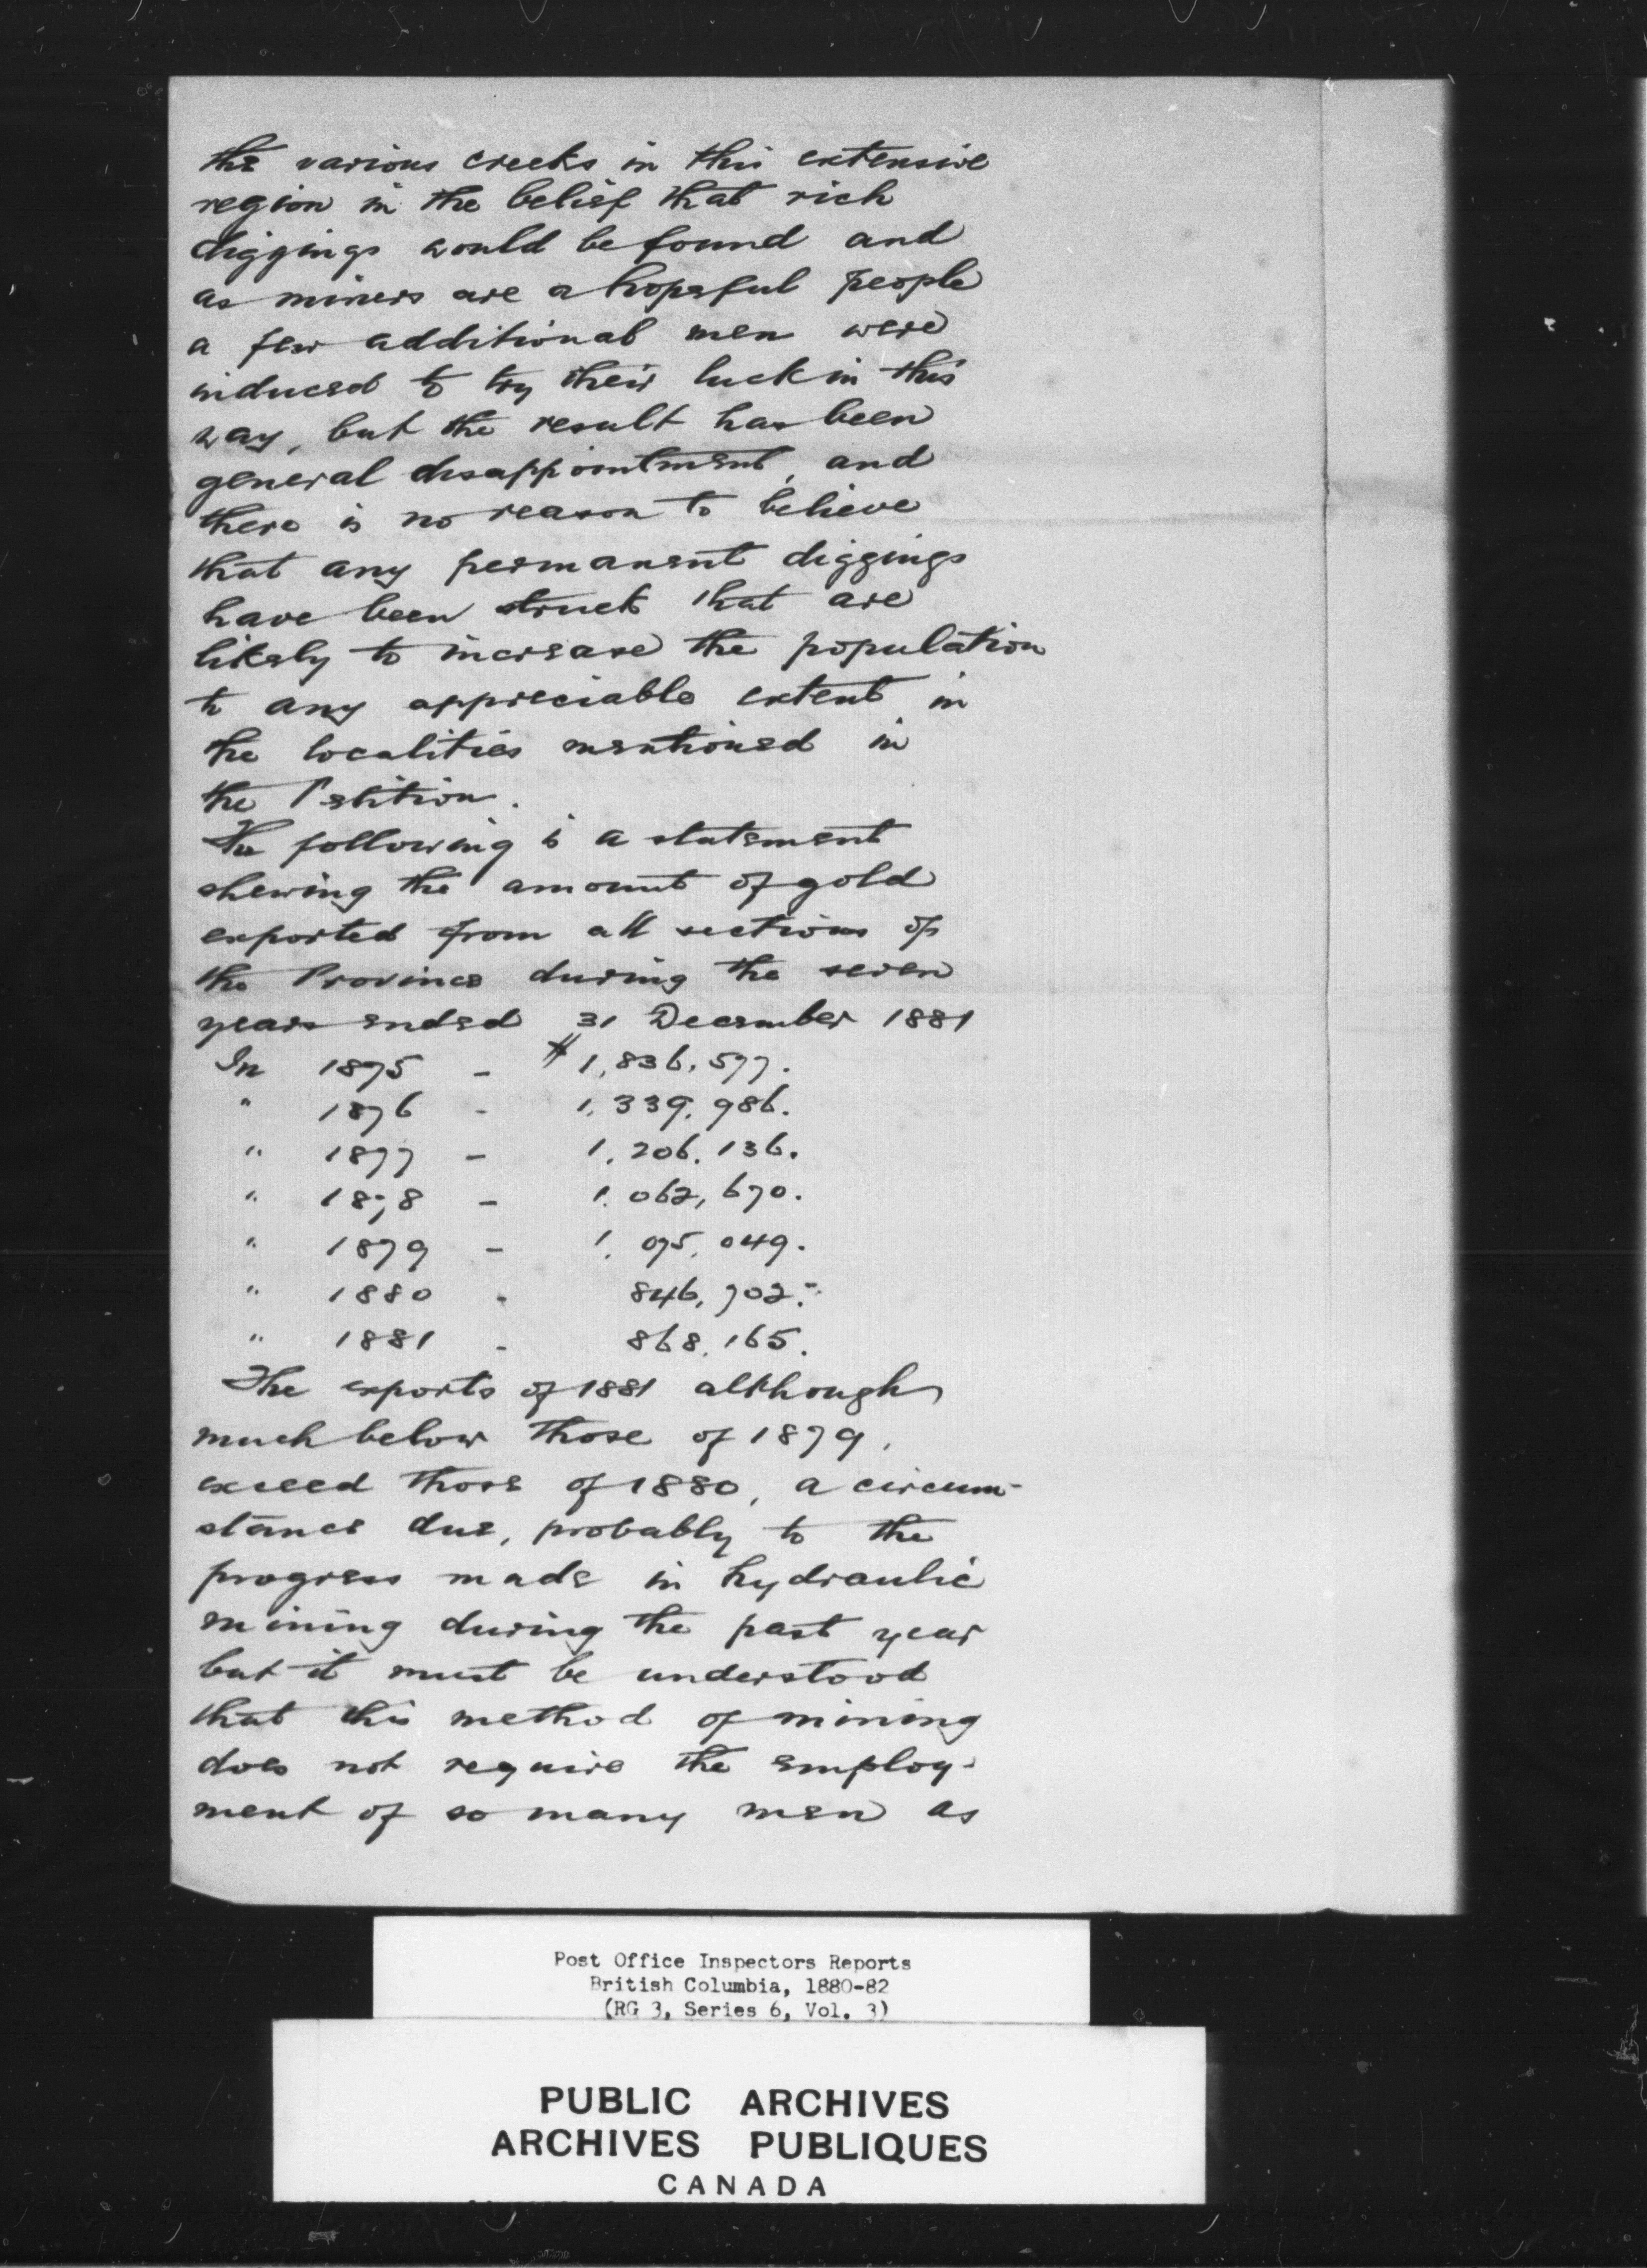 the various creeks in this extensive
region in the belief that rich
diggings would be found and
as miners are a hopeful people
a few additional men were
induced to try their luck in this
way, but the result has been
general disappointment, and
there is no reason to believe
that any permanent diggings
have been struck that are
likely to increase the population
to any appreciable extent in
the localities mentioned in
the Petition.
The following is a statement
shewing the amount of gold
exported from all sections of
the Province during the seven
years ended 31 December 1881
In 1875 - $1,836,577.
" 1876 - 1,339,986.
" 1877 - 1,206,136.
" 1878 - 1,062,670.
" 1879 - 1,075,049.
" 1880 - 846,702.
" 1881 - 868,165.
The exports of 1881 although
much below those of 1879,
exceed those of 1880, a circum-
stance due, probably to the
progress made in hydraulic
mining during the past year
but it must be understood
that this method of mining
does not require the employ-
ment of so many men as
Post Office Inspectors Reports
British Columbia, 1880-82
(RG 3, Series 6, Vol. 3)
PUBLIC ARCHIVES
ARCHIVES PUBLIQUES
CANADA